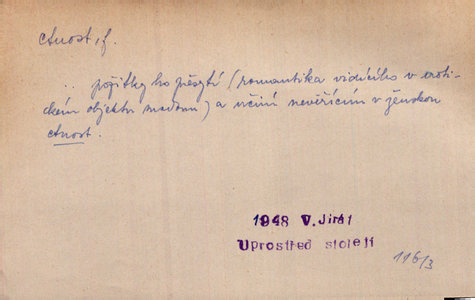 ctnost, f.
.. požitky ho přesytí (romantika vidícího v eroti-
ckém objektu madonu) a učiní nevěřícím v ženskou
ctnost.
1948 V. Jirát
Uprostřed století
116/3